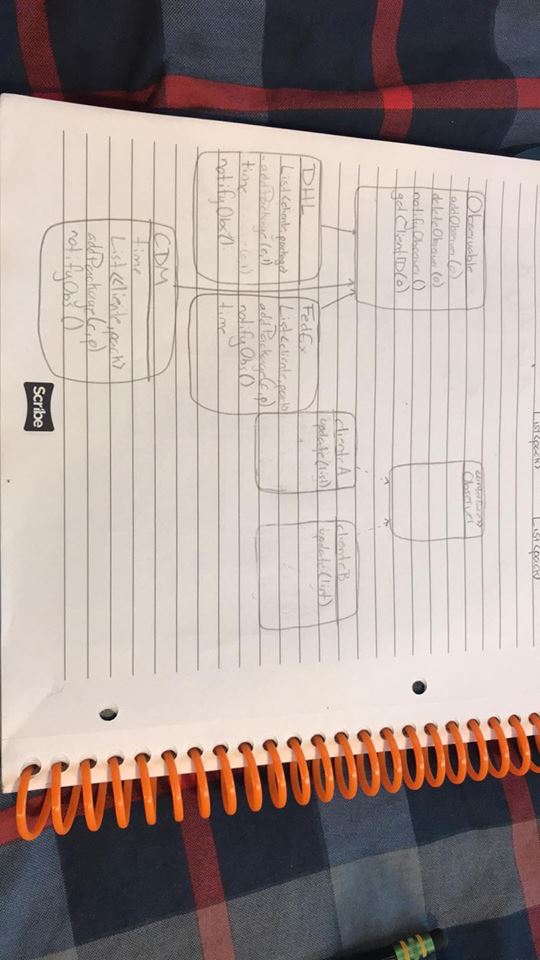 List<pack> List<pack>
Observable
addObserver(o)
deleteObserver(o)
notifyObserver()
getClientID(o)
<<interface>>
Observer
clienteA
update(list)
clienteB
update(list)
DHL
List<cliente,package>
addPackage(c,l)
time (c,l)
notifyObs()
FedEx
List<cliente,pack>
addPackage(c,p)
notifyObs()
time
CDM
time
List<cliente,pack>
addPackage(c,p)
notifyObs()
Scribe